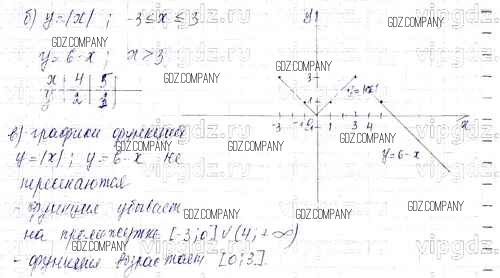 б) y=|x| ; -3≤x≤3
y=6-x ; x>3
x | 4 | 5
y | 2 | 1
в) графики функций
y=|x| ; y=6-x не
пересекаются
- функция убывает
на промежутке [-3;0]∪(4;+∞)
- функция возрастает [0;3].
y
3
1
-3
-1
0
1
3
4
x
y=|x|
y=6-x
GDZ.COMPANY
GDZ.COMPANY
GDZ.COMPANY
GDZ.COMPANY
GDZ.COMPANY
GDZ.COMPANY
GDZ.COMPANY
GDZ.COMPANY
GDZ.COMPANY
GDZ.COMPANY
GDZ.COMPANY
GDZ.COMPANY
vipgdz
vipgdz
vipgdz